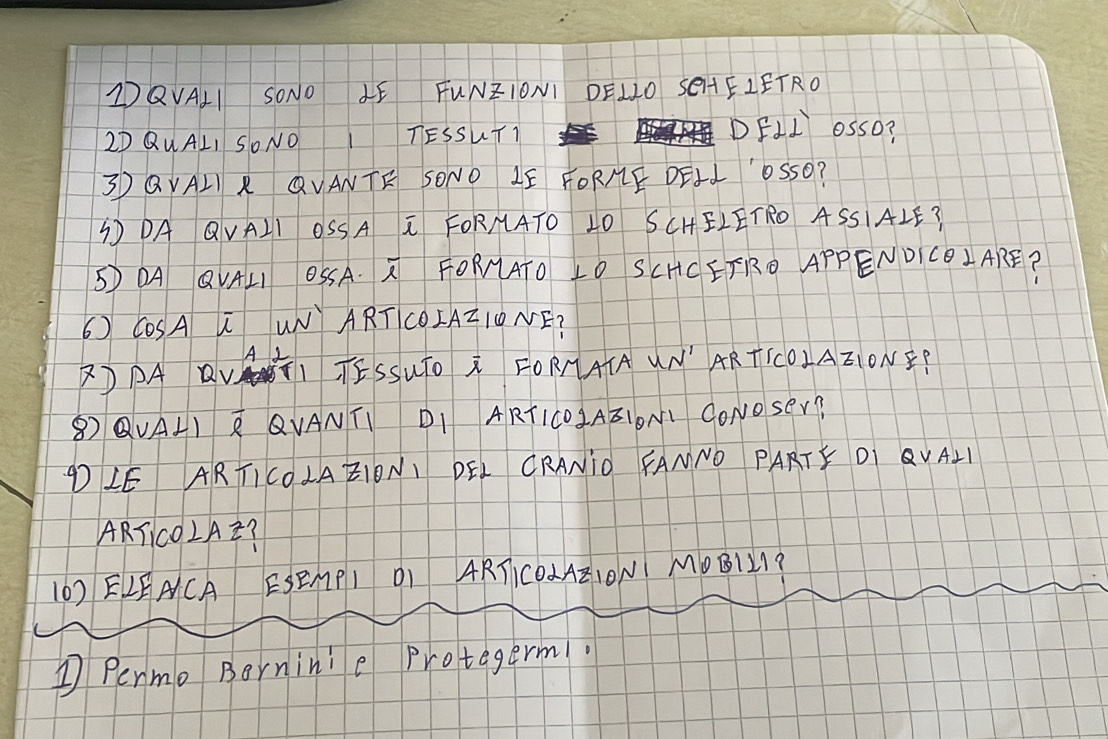 1) QUALI SONO LE FUNZIONI DELLO SCHELETRO
2) QUALI SONO I TESSUTI DELL' OSSO?
3) QUALI e QUANTE SONO LE FORME DELL 'OSSO?
4) DA QUALI OSSA è FORMATO LO SCHELETRO ASSIALE?
5) DA QUALI OSSA è FORMATO LO SCHCETRO APPENDICOLARE?
6) COSA è UN' ARTICOLAZIONE?
7) DA QUALI TESSUTO è FORMATA UN' ARTICOLAZIONE?
8) QUALI è QUANTI DI ARTICOLAZIONI CONOSCV?
9) LE ARTICOLAZIONI DEL CRANIO FANNO PARTE DI QUALI
ARTICOLAZ?
10) ELENCA ESEMPI DI ARTICOLAZIONI MOBILI?
1) Permo e Protegermi.